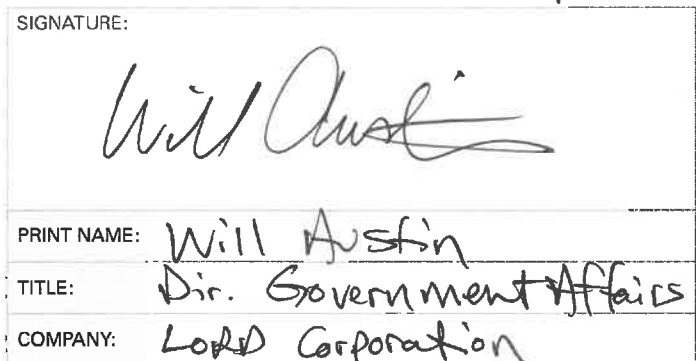 SIGNATURE:
Will Austin
PRINT NAME: Will Austin
TITLE: Dir. Government Affairs
COMPANY: LORD Corporation